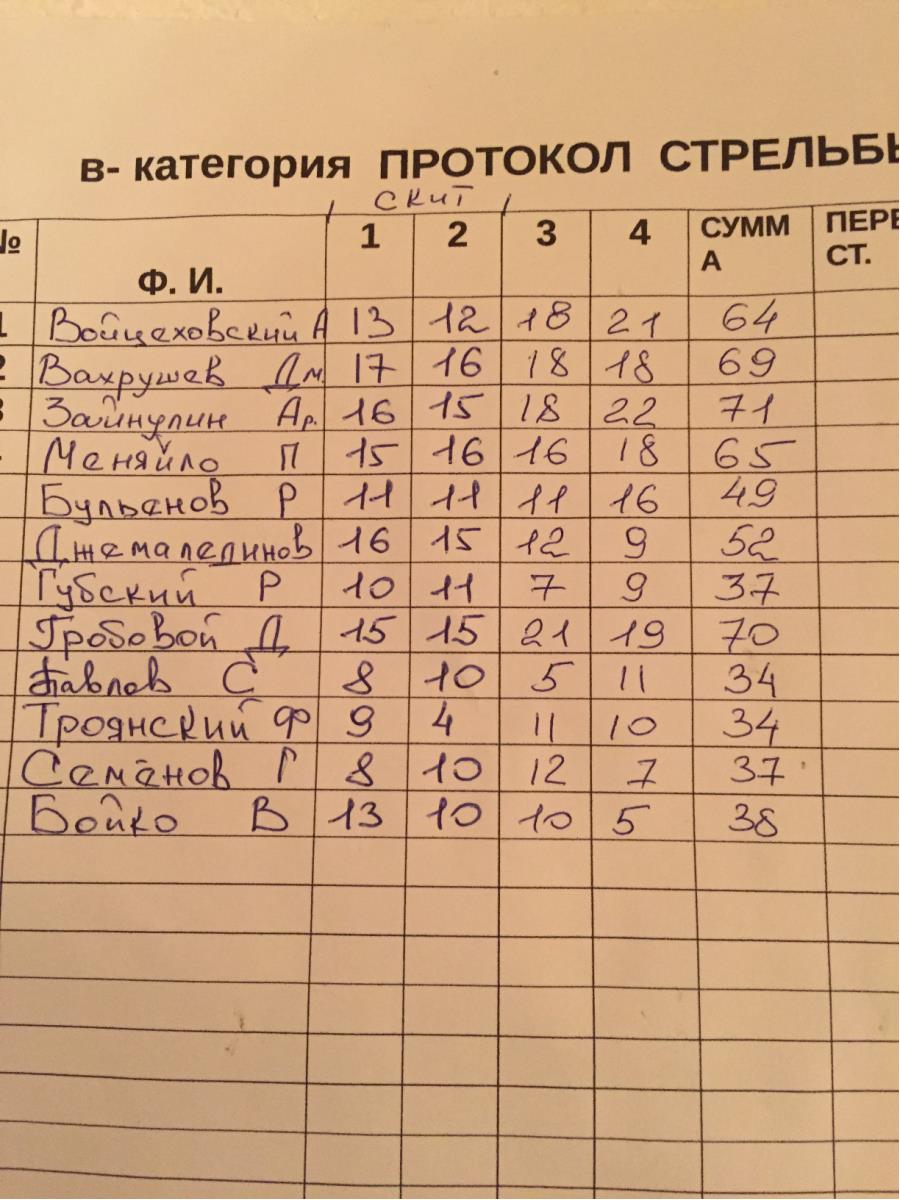 в- категория ПРОТОКОЛ СТРЕЛЬБЫ
скит
№ Ф. И. 1 2 3 4 СУММ ПЕРЕ
А СТ.
1 Войцеховский А 13 12 18 21 64
2 Вахрушев Дм. 17 16 18 18 69
3 Зайнулин Ар. 16 15 18 22 71
Меняйло П 15 16 16 18 65
Бульенов Р 11 11 11 16 49
Джемалединов 16 15 12 9 52
Губский Р 10 11 7 9 37
Гробовой Д 15 15 21 19 70
Павлов С 8 10 5 11 34
Троянский Ф 9 4 11 10 34
Семёнов Г 8 10 12 7 37
Бойко В 13 10 10 5 38